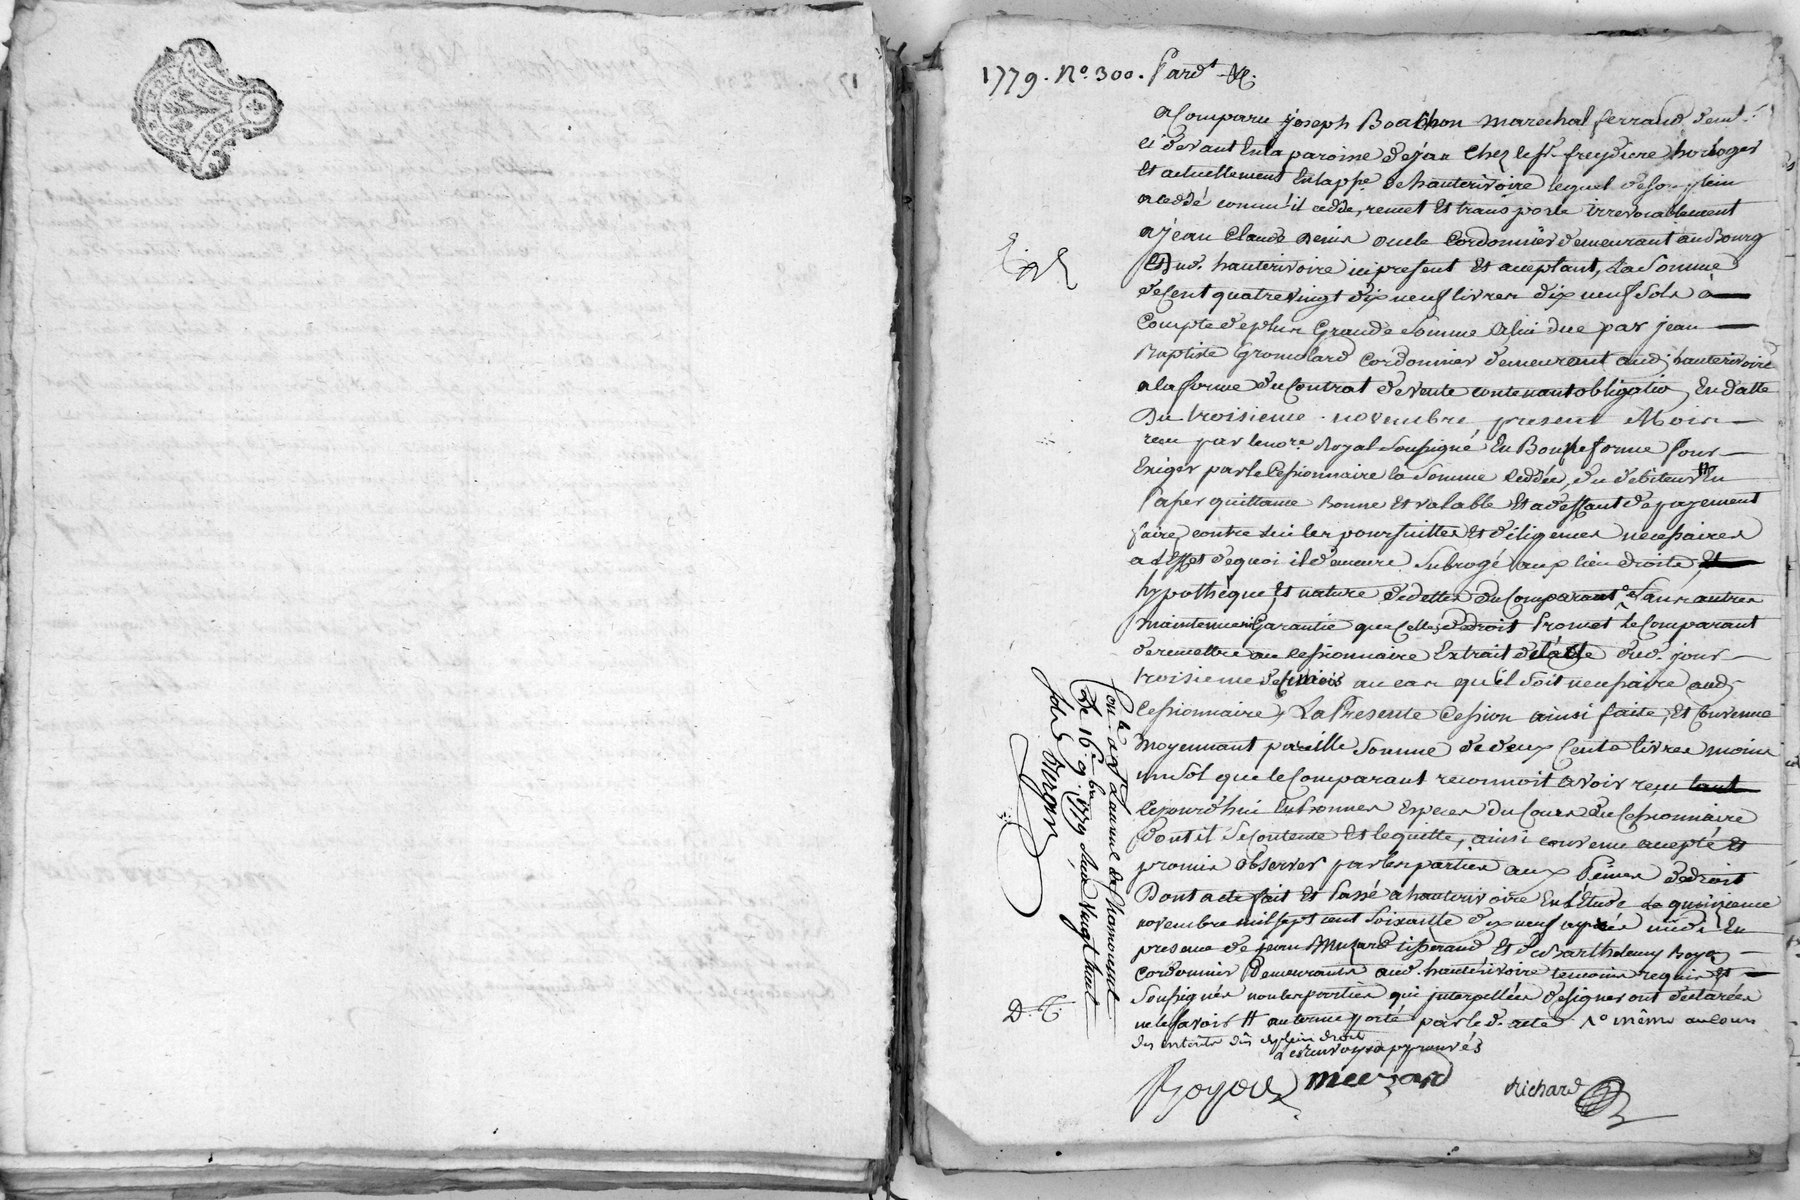 1779. N.o 300. Pard.t &c.
a Comparu joseph Boachon marechal ferrand dem.t
ci devant en la paroisse de jean Chez le s.r freydiere horloger
Et actuellement en la pp.e de hauterivoire lequel de son plein
a ceddé comm'il cedde, remet et transporte irrevocablement
a jean Claude Denis oncle Cordonnier demeurant au Bourg
Dud. hauterivoire ici present et acceptant, La Somme
de Cent quatre vingt dix neuf livres dix neuf Sols à
Compte de plus Grande Somme a lui due par jean
Baptiste Gromolard Cordonnier demeurant aud. hauterivoire
a la forme du Contrat de vente contenant obligatio En datte
Du troisieme novembre present Mois
recu par le no.re Royal Soussigné En Bonne forme Pour
Exiger par le Cessionnaire la Somme Ceddée, du debiteur # En
Passer quittance Bonne Et valable Et a deffaut de payement
faire contre lui les poursuittes et diligences necessaires
a L'effet de quoi il demeure Subrogé aux lieu droits,
hypothèque, Et nature de dettes du Comparant Sans autres
maintenue ni Garantie que Celle de droit Promet le Comparant
de remettre au Cessionnaire Extrait de l'acte dud. jour
troisieme de ce mois au cas qu'il soit necessaire aud.
Cessionnaire, La Presente Cession ainsi faite, Et Convenue
moyennant pareille Somme de deux Cents livres moins
un Sol que le Comparant reconnoit avoir reçu
cejourd'hui en bonnes Especes du Cours du Cessionnaire
Dont il Se Contente Et le quitte, ainsi convenu accepté Et
promis observer par les parties aux Peines de droit
Dont acte fait Et Passé a hauterivoire En L'Etude Le quinzieme
novembre mil sept cent Soixante dix neuf après midi En
presence de jean Muzard tisserand Et de Barthelemy Boyer
Cordonnier Demeurants aud. hauterivoire temoins requis Et
Soussignés non les parties qui interpellées de signer ont declarées
ne le Savoir # au terme porté par le d. acte même au Cours
des interêts dûs de plein droit
les renvoys approuvés
Boyer meuzard Richard
Con.lé a S.t Laurent de Chamousset
Le 16.e 9.bre 1779 Reçu Vingt huit
sols
D. C.